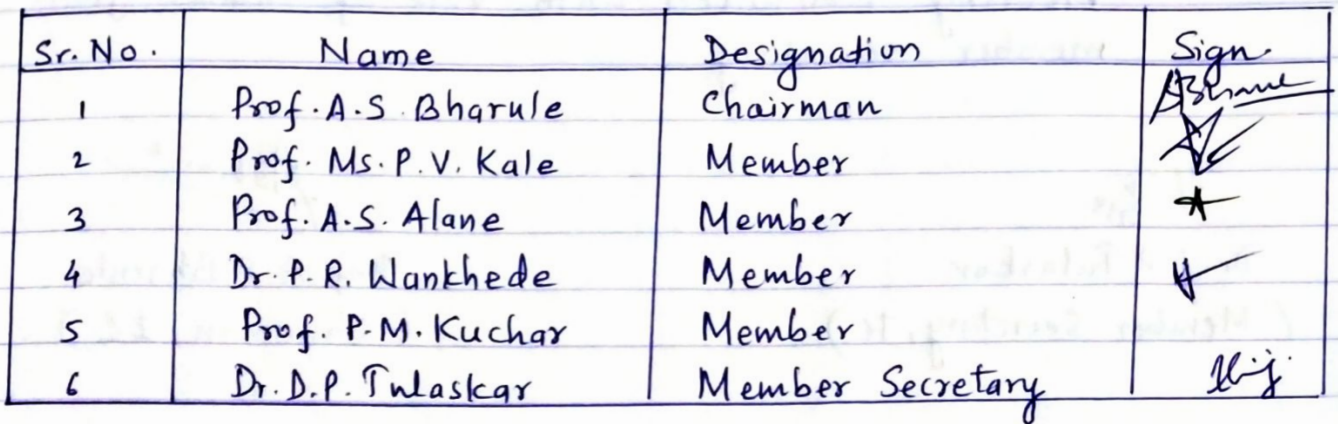 Sr. No. Name Designation Sign.
1 Prof. A.S. Bharule Chairman
2 Prof. Ms. P. V. Kale Member
3 Prof. A.S. Alane Member
4 Dr. P. R. Wankhede Member
5 Prof. P. M. Kuchar Member
6 Dr. D. P. Tulaskar Member Secretary